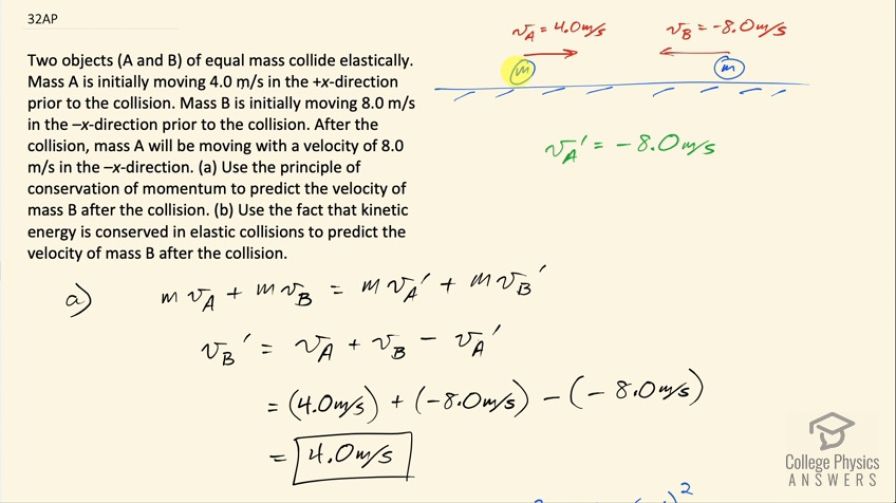 32AP
v_A = 4.0 m/s v_B = -8.0 m/s
m m
Two objects (A and B) of equal mass collide elastically.
Mass A is initially moving 4.0 m/s in the +x-direction
prior to the collision. Mass B is initially moving 8.0 m/s
in the –x-direction prior to the collision. After the
collision, mass A will be moving with a velocity of 8.0
m/s in the –x-direction. (a) Use the principle of
conservation of momentum to predict the velocity of
mass B after the collision. (b) Use the fact that kinetic
energy is conserved in elastic collisions to predict the
velocity of mass B after the collision.
v_A' = - 8.0 m/s
a) m v_A + m v_B = m v_A' + m v_B'
v_B' = v_A + v_B - v_A'
= (4.0 m/s) + (-8.0 m/s) - (-8.0 m/s)
= 4.0 m/s
College Physics
ANSWERS